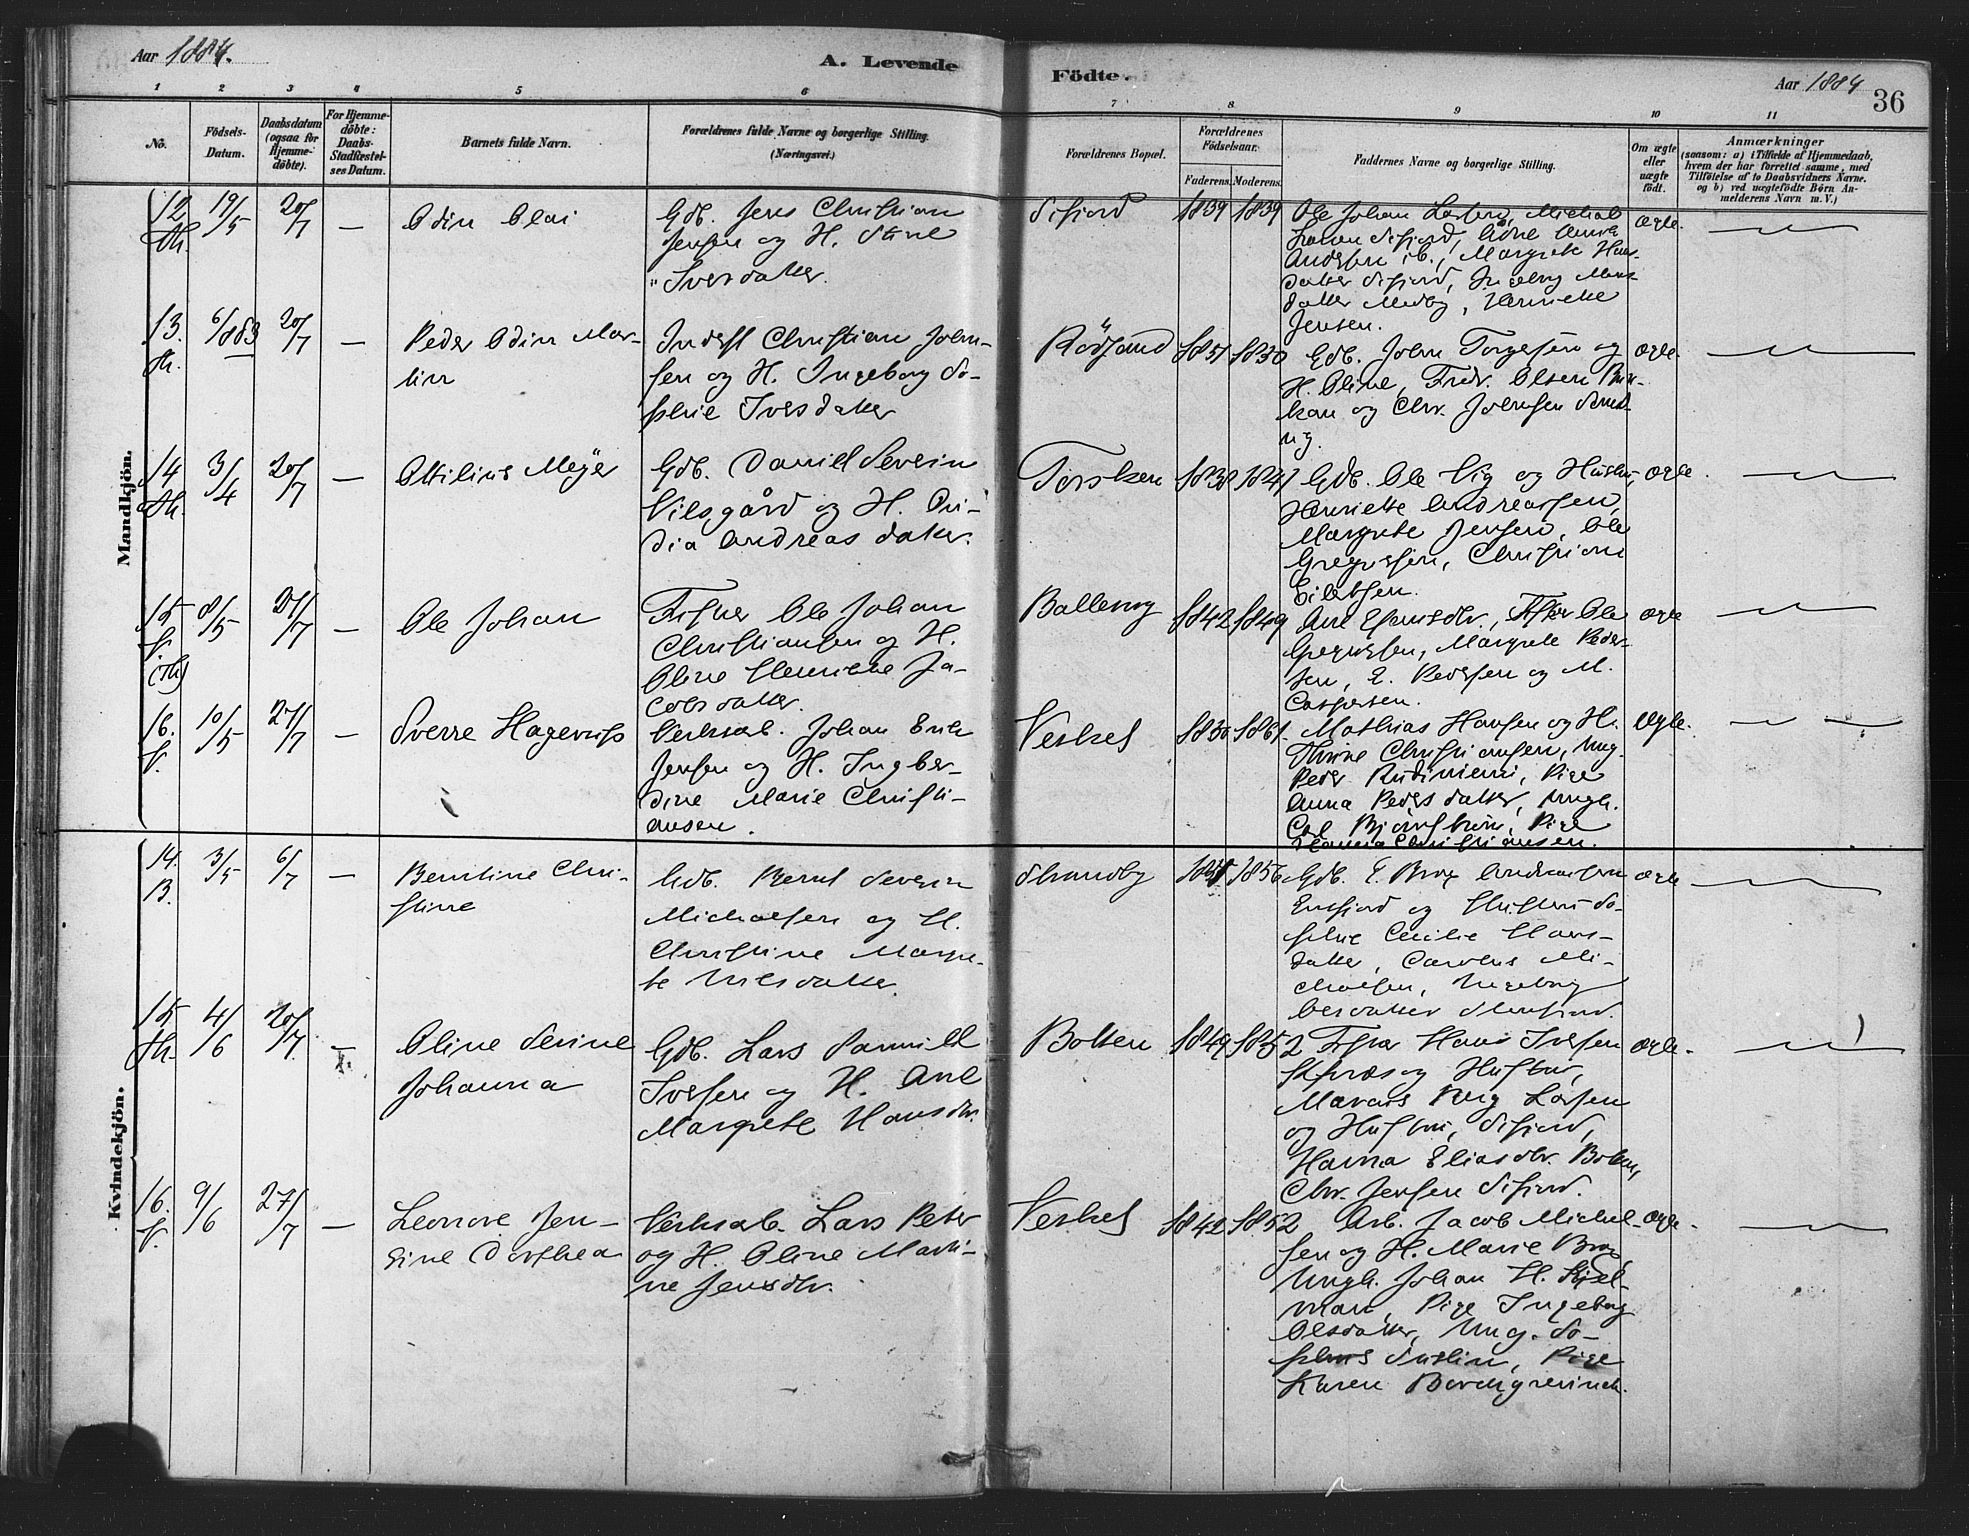 Aar 1884.
A. Levende
Födte.
Aar 1884
36
1 2 3 4 5 6 7 8 9 10 11
No.
Födsels-Datum.
Daabsdatum (ogsaa for Hjemme-döbte).
For Hjemme-döbte: Daabs-Stadfæstel-ses Datum.
Barnets fulde Navn.
Forældrenes fulde Navne og borgerlige Stilling.
(Næringsvei.)
Forældrenes Bopæl.
Forældrenes Födselsaar.
Faderens. Moderens.
Faddernes Navne og borgerlige Stilling.
Om ægte eller uægte födt.
Anmærkninger
(saasom: a) i Tilfælde af Hjemmedaab, hvem der har forrettet samme, med Tilföielse af to Daabsvidners Navne. og b) ved uægtefödte Börn An-melderens Navn m. V.)
Mandkjön.
12 Th. 19/5 20/7 —
Odin Olai
Gdb. Jens Christian
Jensen og H. Stine
Iversdatter.
Sifjord 1839 1839
Ole Johan Larsen, Michal
Larsen Sifjord,
Andersen ib., Margrete Hans-
datter Sifjord, Ingeborg Mons-
datter Medby, Henrikke
Jensen.
ægte.
13. Th. 6/8 83 20/7 —
Peder Odin Mar-
tin
Inderst Christian John-
sen og H. Ingeborg So-
phie Iversdatter
Rödsand 1851 1830
Gdb. John Torgersen og
H. Oline, Fredr. Olsen
og Chr. Johnsen
ægte.
14 Th. 3/4 20/7 —
Ottilius Meyer
Gdb. Daniel Severin
Vilsgård og H.
Andreasdatter.
Torsken 1838 1841
Gdb. Ole Vig og Hustru,
Henriette Andreassen,
Margrete Jensen, Ole
Gregussen, Christian
Eilertsen.
ægte.
15 f. (Th) 8/5 27/7 —
Ole Johan
Fisker Ole Johan
Christiansen og H.
Oline Henrikke Ja-
cobsdatter.
Ballesvog 1842 1849
Ane Efraimsdtr., Fisker Ole
Gregussen, Margrete Peder-
sen, E. Pedersen og M.
Caspersen.
ægte
16. f. 10/5 27/7 —
Sverre Hagerups
Verksarb. Johan Erik
Jensen og H. Ingber-
dine Marie Christi-
ansen.
Verket 1835 1861.
Mathias Hansen og H.
Thrine Christiansen, Ung.
Peder Rudiniemi, Pige
Anna Pedersdatter, Ungk.
Carl Björnström, Pige
Hanna Christiansen.
Ægte.
Kvindekjön.
14. B. 3/5 6/7 —
Berntine Chri-
stine
Gdb. Bernt Severin
Michaelsen og H.
Christine Margre-
te Nilsdatter.
Strandby 1856
Gdb. E. Andreassen
og Hustru So-
phie Cecilie Hans-
datter, Carolus Mi-
chaelsen, Ingeborg
ægte
15 Th. 4/6 20/7 —
Oline Serine
Johanna
Gdb. Lars Daniel
Iversen og H. Ane
Margrete Hansdtr.
Botten 1849 1852
Fisker Hans Iversen
og Hustru,
Marcus Berg Larsen
og Hustru, Sifjord,
Hanna Eliasdtr. Botten,
Chr. Jensen Sifjord.
ægte.
16. f. 9/6 27/7 —
Leonore Jen-
sine Dorthea
Verksarb. Lars Peter
og H. Oline Marti-
ne Jensdtr.
Verket 1842 1852
Arb. Jacob Michel-
sen og H. Marie
Ungk. Johan H. Kjel-
man, Pige Ingeborg
Olsdatter, Ung. So-
phus Pige
Karen Borchgrevinck.
ægte.